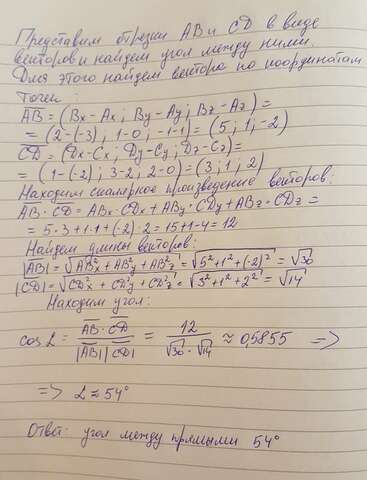 Представим отрезки AB и CD в виде
векторов и найдем угол между ними.
Для этого найдем вектора по координатам
точек:
AB = (Bx - Ax; By - Ay; Bz - Az) =
= (2-(-3); 1-0; -1-1) = (5; 1; -2)
CD = (Dx - Cx; Dy - Cy; Dz - Cz) =
= (1-(-2); 3-2; 2-0) = (3; 1; 2)
Находим скалярное произведение векторов:
AB · CD = ABx · CDx + ABy · CDy + ABz · CDz =
= 5·3 + 1·1 + (-2)·2 = 15+1-4 = 12
Найдем длины векторов:
|AB| = √ABx² + ABy² + ABz² = √5² + 1² + (-2)² = √30
|CD| = √CDx² + CDy² + CDz² = √3² + 1² + 2² = √14
Находим угол:
cos α = AB · CD / |AB| |CD| = 12 / √30 · √14 ≈ 0,5855 =>
=> α ≈ 54°
Ответ: угол между прямыми 54°